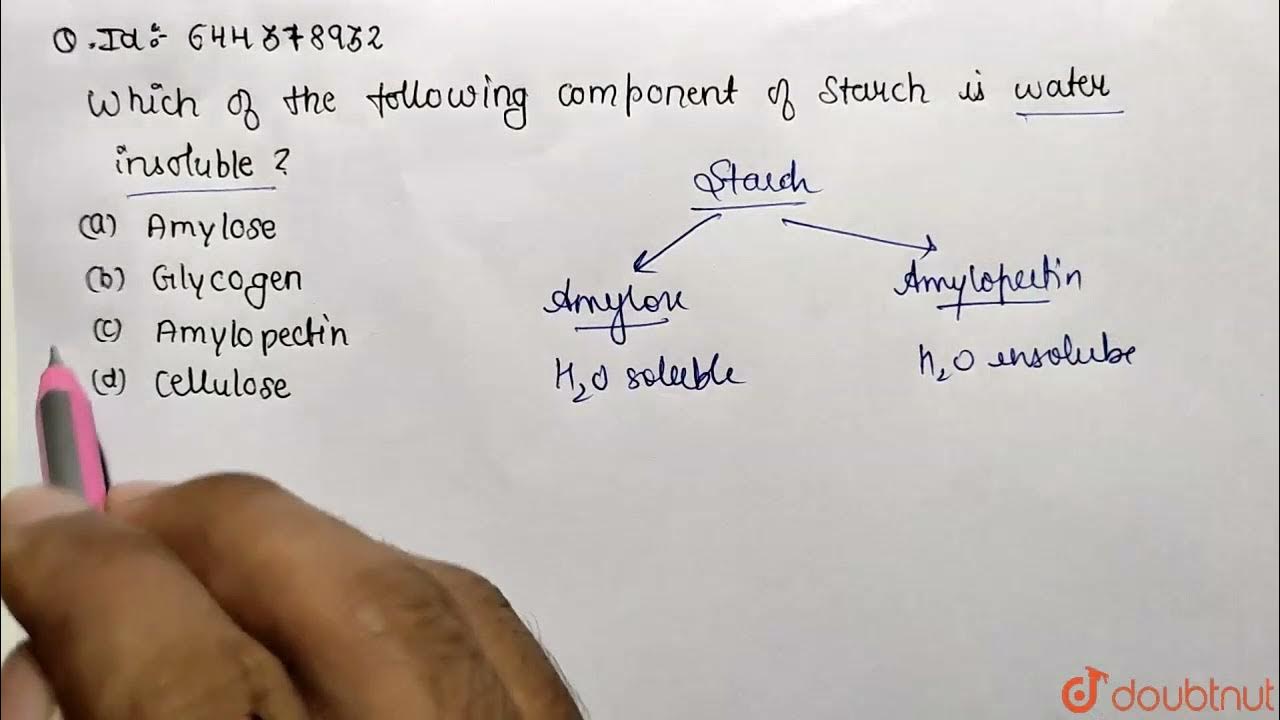 Q.Id:- 644378932
Which of the following component of Starch is water
insoluble?
(a) Amylose
(b) Glycogen
(c) Amylopectin
(d) Cellulose
Starch
Amylose
Amylopectin
H₂O soluble
H₂O insolube
doubtnut